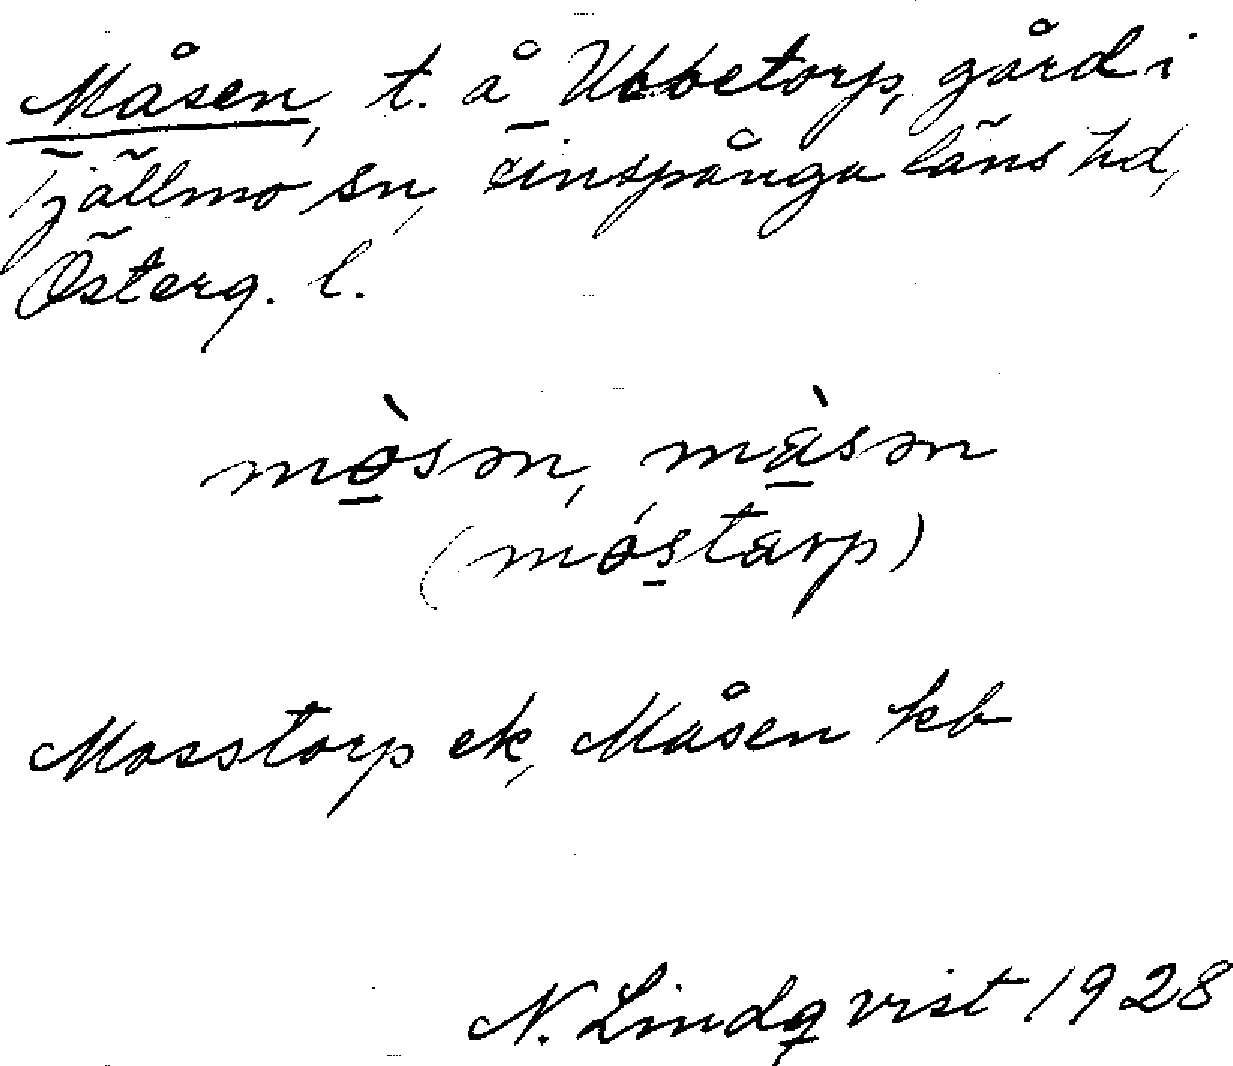 Måsen, t. å Ubbetorp, gård i
Tjällmo sn, Finspånga läns hd,
Österg. l.
mò̲sən, mà̲sən
(mós̲tarp)
Mosstorp ek, Måsen kb
N. Lindqvist 1928